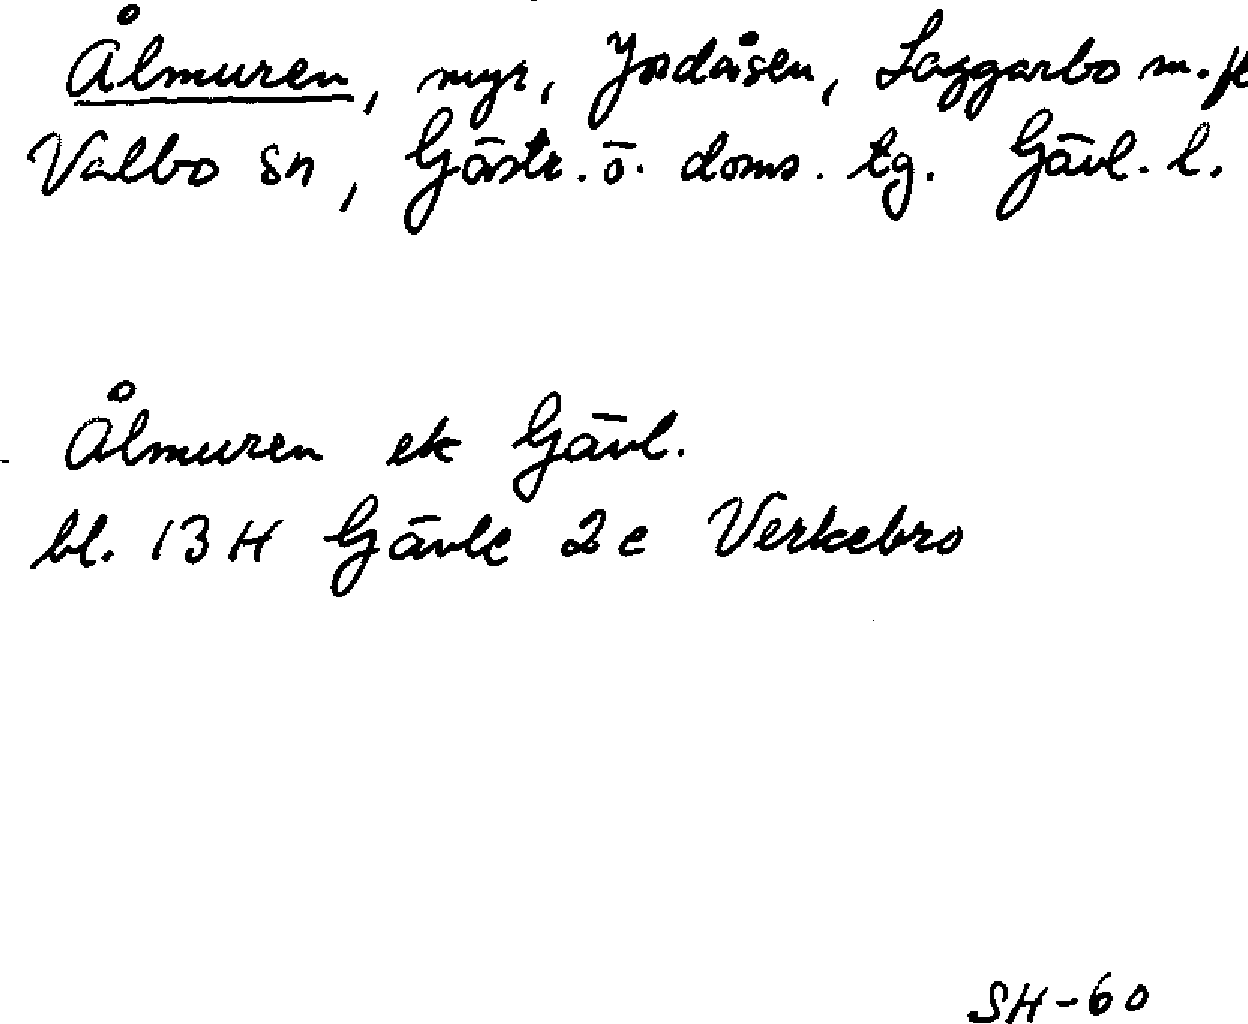 Ålmuren, myr, Jordåsen, Laggarbo m.fl
Valbo sn, Gästr. ö. doms. tg. Gävl. l.
Ålmuren ek Gävl.
bl. 13 H Gävle 2c Verkebro
SH-60